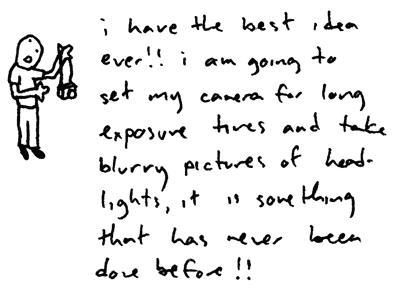 i have the best idea
ever!! i am going to
set my camera for long
exposure times and take
blurry pictures of head-
lights, it is something
that has never been
done before!!